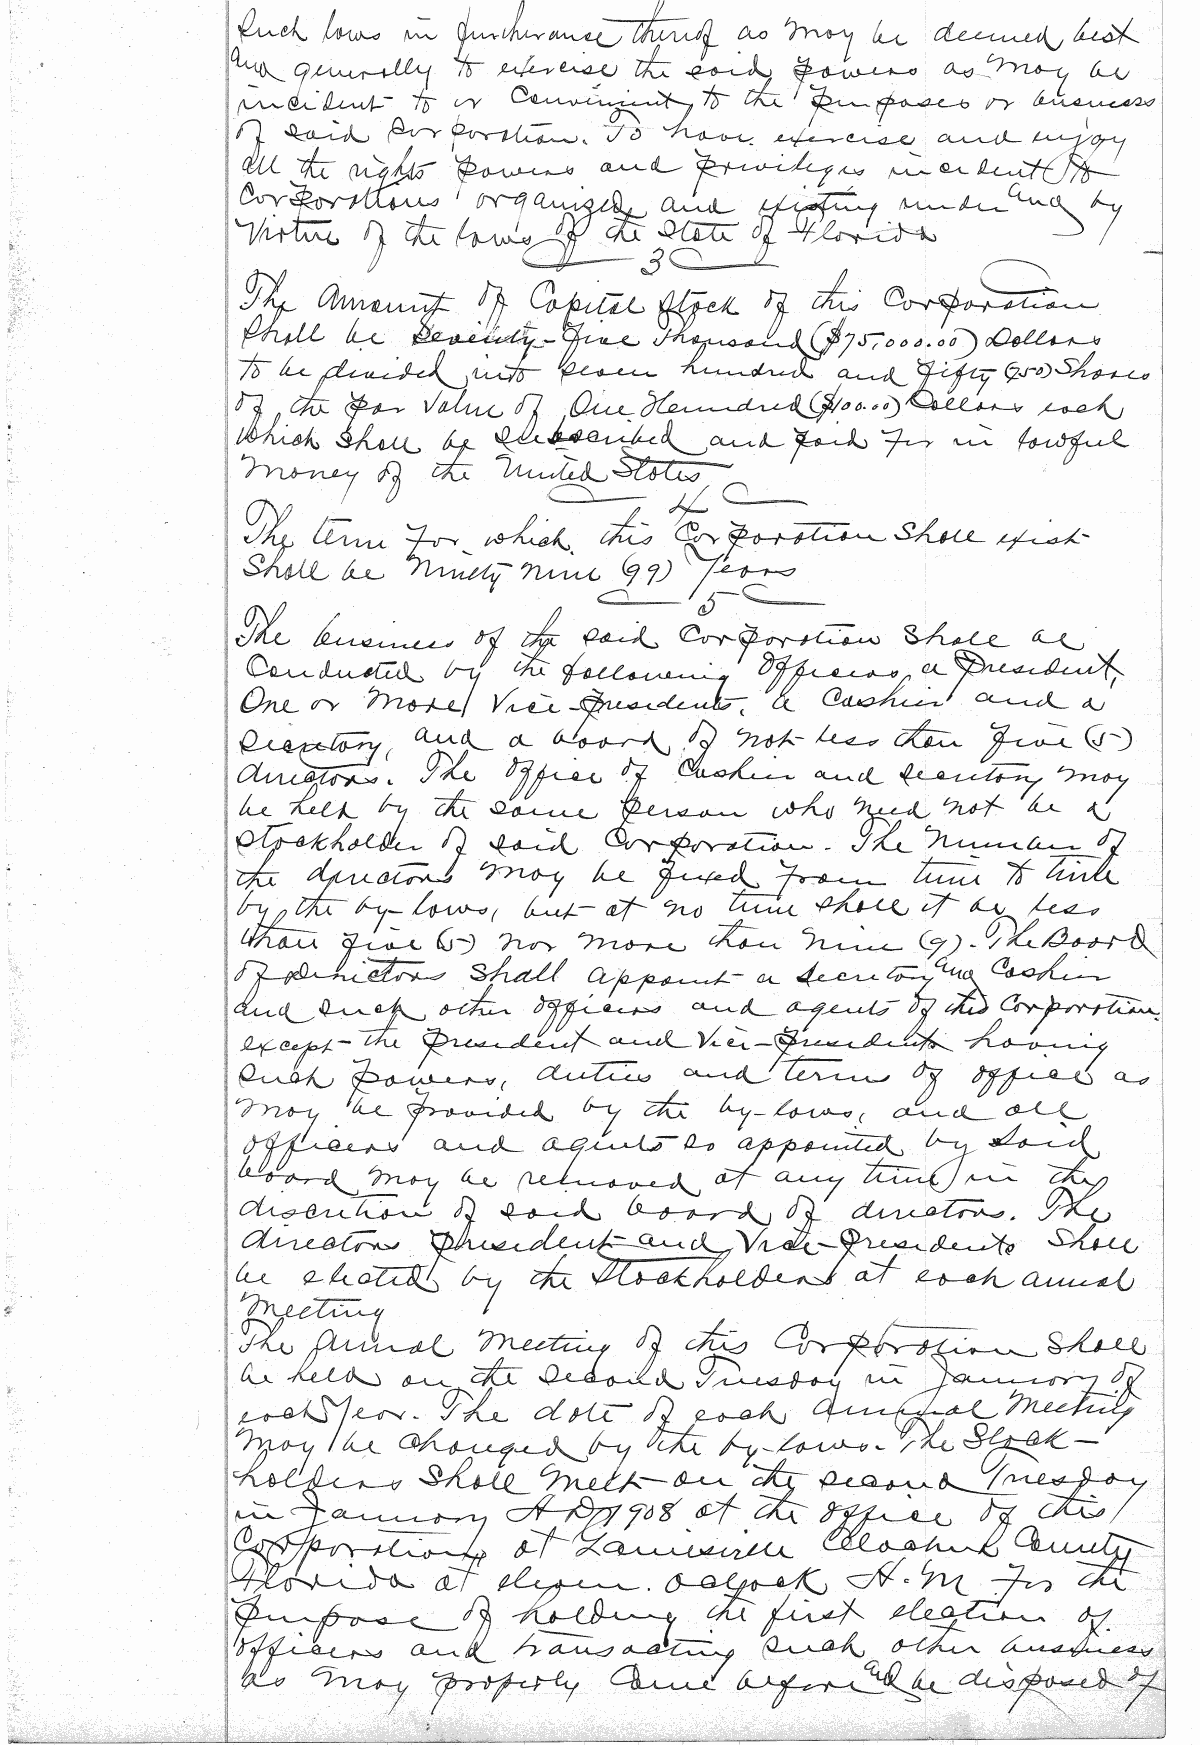 Such laws in furtherance thereof as may be deemed best
and generally to exercise the said powers as may be
incident to or convenient to the purposes or business
of said Corporation. To have exercise and enjoy
all the rights powers and privileges incident to
Corporations organized and existing under and by
Virtue of the laws of the State of Florida
3
The Amount of Capital Stock of this Corporation
Shall be Seventy-five Thousand ($75,000.00) Dollars
to be divided into seven hundred and fifty (750) Shares
of the par value of One Hundred ($100.00) Dollars each
which Shall be subscribed and paid for in lawful
Money of the United States
4
The term for which this Corporation Shall exist
Shall be Ninety nine (99) Years
5
The business of the said Corporation Shall be
Conducted by the following Officers a President,
One or more Vice-Presidents, a Cashier and a
Secretary, and a board of not less than five (5)
directors. The office of Cashier and secretary may
be held by the same person who need not be a
Stockholder of said Corporation. The Number of
the directors may be fixed from time to time
by the by-laws, but at no time shall it be less
than five (5) nor more than nine (9). The Board
of directors Shall appoint a Secretary and Cashier
and such other officers and agents of this Corporation
except the President and Vice-Presidents having
such powers, duties and terms of office as
may be provided by the by-laws, and all
officers and agents so appointed by said
board may be removed at any time in the
discretion of said board of directors. The
directors President and Vice-Presidents Shall
be elected by the Stockholders at each annual
Meeting
The Annual Meeting of this Corporation Shall
be held on the second Tuesday in January of
each year. The date of each annual Meeting
may be changed by the by-laws. The Stock-
holders Shall Meet on the second Tuesday
in January A D 1908 at the office of this
Corporation at Alachua County
Florida at eleven oclock A.M for the
purpose of holding the first election of
officers and transacting such other business
as may properly come before and be disposed of